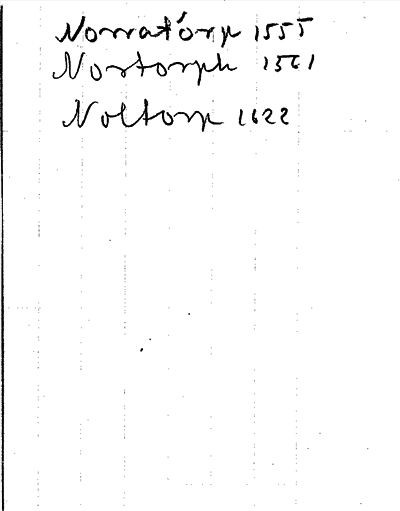 Norratorp 1555
Nortorph 1561
Noltorp 1622